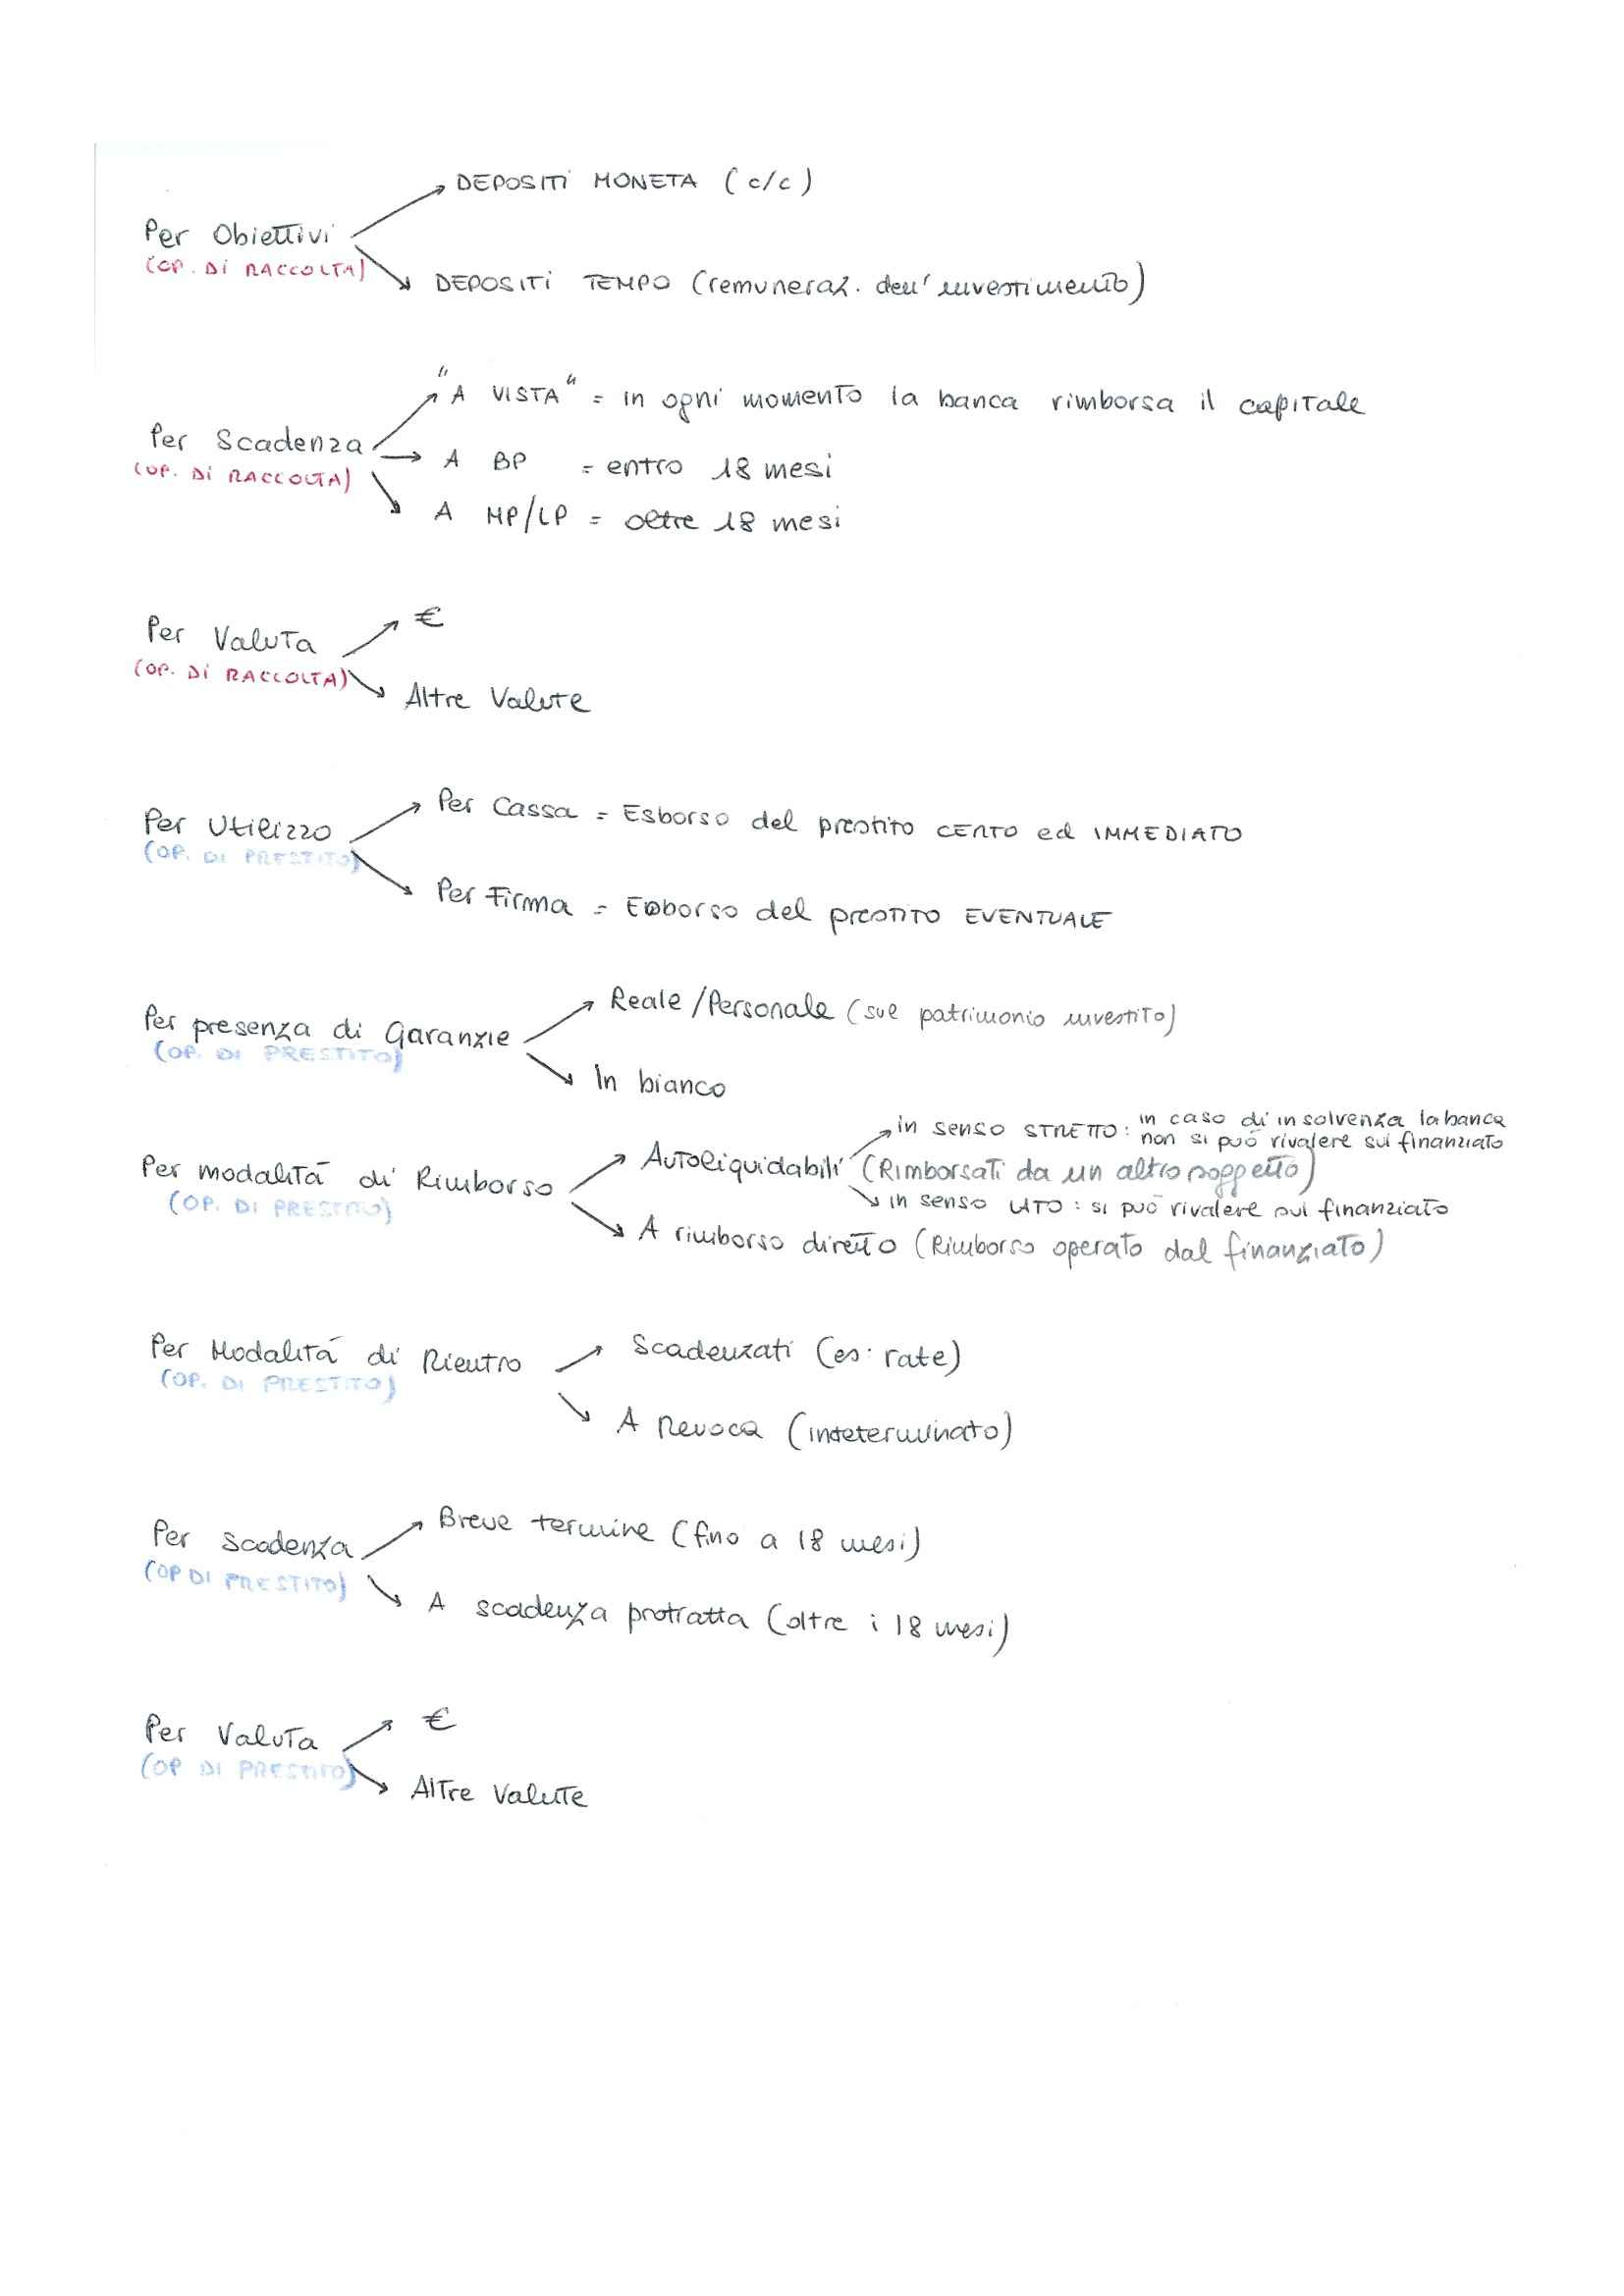 DEPOSITI MONETA (c/c)
Per Obiettivi
(OP. Di RACCOLTA)
DEPOSITI TEMPO (remuneraz. dell'investimento)
"A VISTA" = in ogni momento la banca rimborsa il capitale
Per Scadenza
(OP. Di RACCOLTA)
A BP = entro 18 mesi
A MP/LP = oltre 18 mesi
€
Per Valuta
(OP. Di RACCOLTA)
Altre Valute
Per Cassa = Esborso del prestito CERTO ed IMMEDIATO
Per Utilizzo
(OP. DI PRESTITO)
Per Firma = Esborso del prestito EVENTUALE
Reale/Personale (sul patrimonio investito)
Per presenza di Garanzie
(OP. DI PRESTITO)
In bianco
in senso STRETTO: in caso di insolvenza la banca
non si può rivalere sul finanziato
Autoliquidabili (Rimborsati da un altro soggetto)
Per modalità di Rimborso
(OP. DI PRESTITO)
in senso LATO: si può rivalere sul finanziato
A rimborso diretto (Rimborso operato dal finanziato)
Scadenzati (es: rate)
Per Modalità di Rientro
(OP. DI PRESTITO)
A Revoca (indeterminato)
Breve termine (fino a 18 mesi)
Per Scadenza
(OP DI PRESTITO)
A scadenza protratta (oltre i 18 mesi)
€
Per Valuta
(OP DI PRESTITO)
Altre Valute